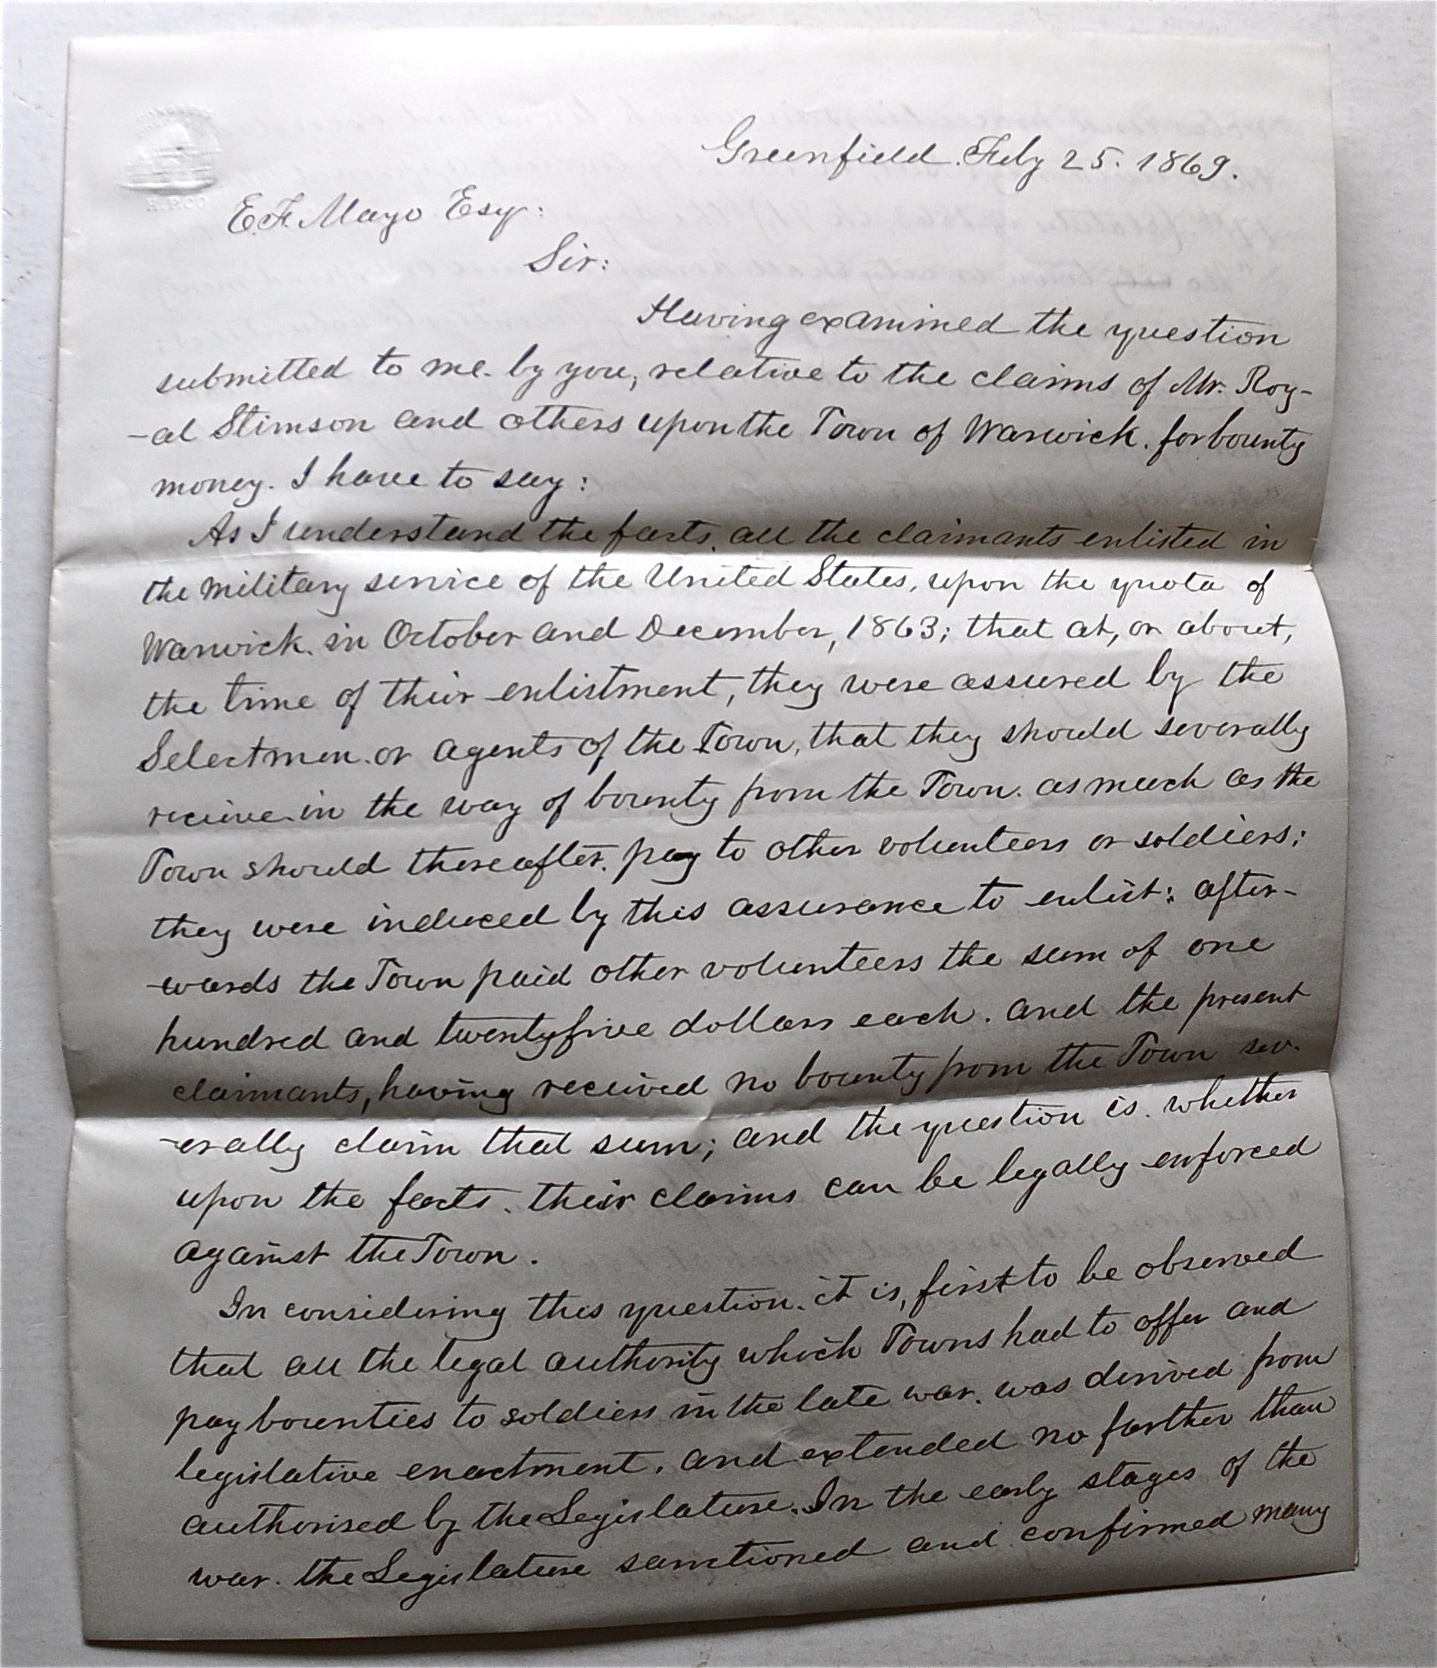 Greenfield. Feby 25. 1869.
E. F. Mayo Esq:
Sir:
Having examined the question
submitted to me. by you, relative to the claims of Mr. Roy-
-al Stimson and others upon the Town of Warwick. for bounty
money. I have to say:
As I understand the facts. all the claimants enlisted in
the military service of the United States, upon the quota of
Warwick. in October and December, 1863; that at, or about,
the time of their enlistment, they were assured by the
Selectmen. or agents of the Town, that they should severally
recieve in the way of bounty from the Town. as much as the
Town should thereafter. pay to other volunteers or soldiers;
they were induced by this assurance to enlist; after-
-wards the Town paid other volunteers the sum of one
hundred and twentyfive dollars each. and the present
claimants, having received no bounty from the Town sev-
-erally claim that sum; and the question is. whether
upon the facts. their claims can be legally enforced
against the Town.
In considering this question. it is, first to be observed
that all the legal authority which Towns had to offer and
pay bounties to soldiers in the late war. was derived from
legislative enactment. and extended no farther than
authorised by the Legislature. In the early stages of the
war. the Legislature sanctioned and confirmed many